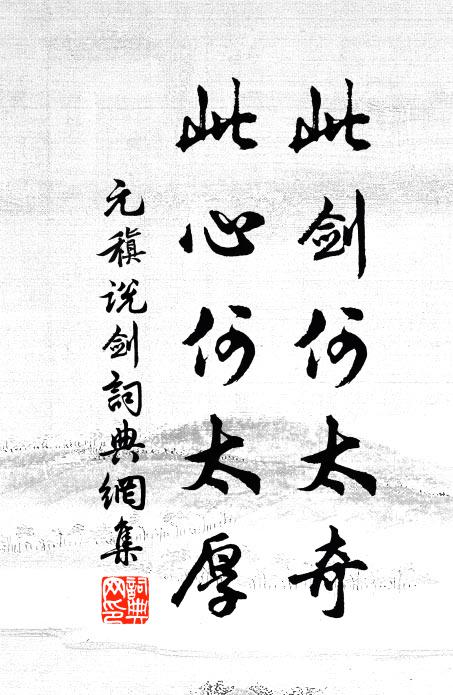 此剑何太奇
此心何太厚
元稹说剑詞典網集
詞典
网印